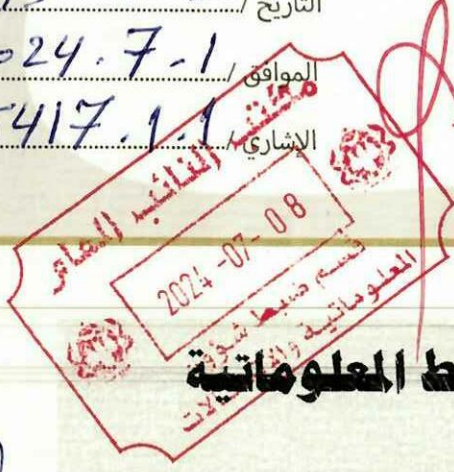 التاريخ /
الموافق / 2024.7.1
الإشاري / 417.1.1
مكتب النائب العام
2024 -07- 08
قسم ضبط شؤون
المعلوماتية والاتصالات
ط المعلوماتية